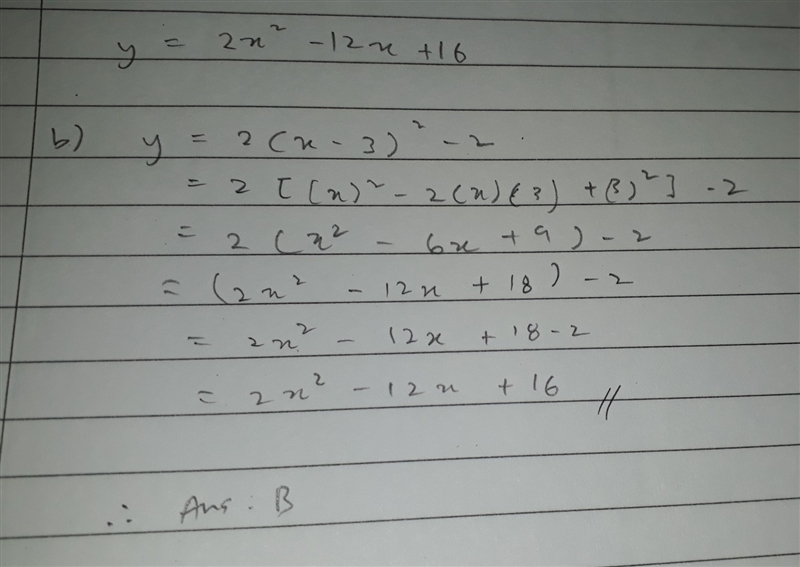 y = 2x² - 12x + 16
b) y = 2(x - 3)² - 2
= 2 [(x)² - 2(x)(3) + (3)²] - 2
= 2 (x² - 6x + 9) - 2
= (2x² - 12x + 18) - 2
= 2x² - 12x + 18 - 2
= 2x² - 12x + 16 //
∴ Ans: B